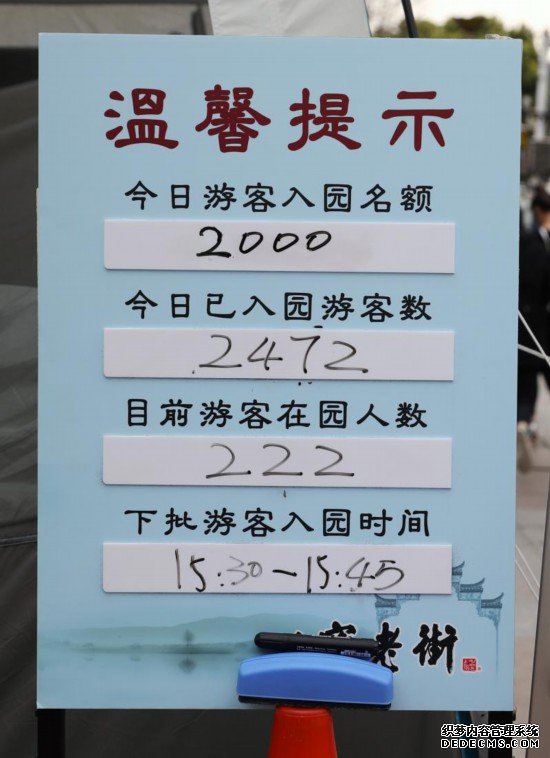 温馨提示
今日游客入园名额
2000
今日已入园游客数
2472
目前游客在园人数
222
下批游客入园时间
15:30-15:45
老街
织梦内容管理系统
DEDECMS.COM